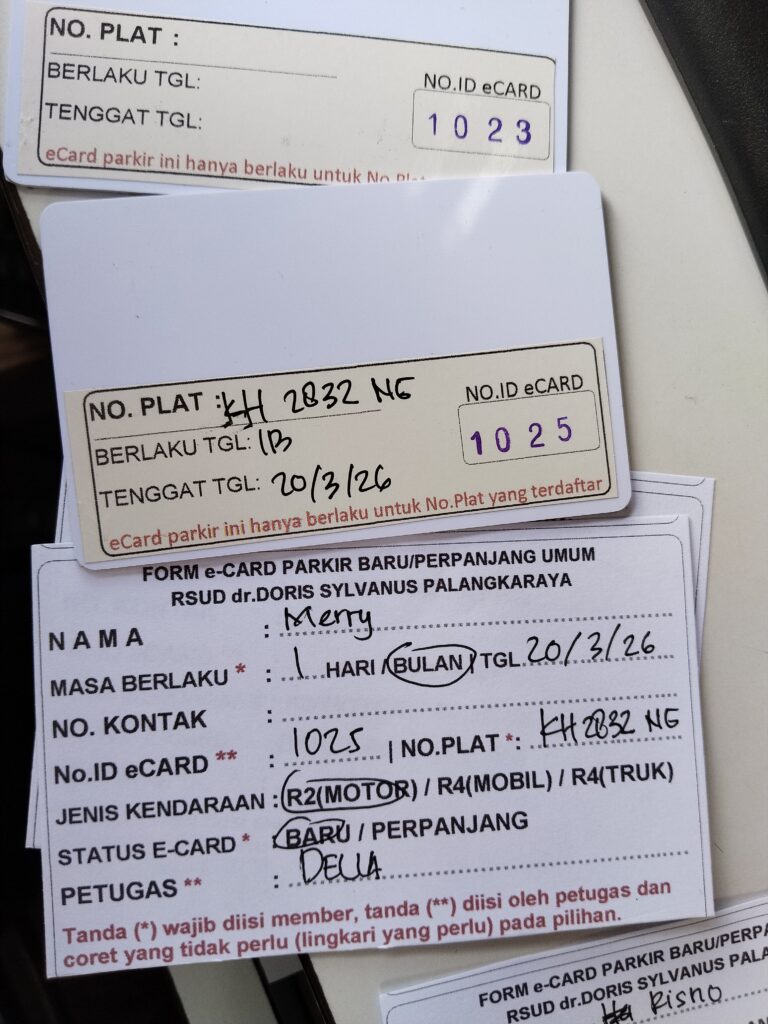 NO. PLAT :
BERLAKU TGL:
TENGGAT TGL:
NO.ID eCARD
1023
eCard parkir ini hanya berlaku untuk No.Plat
NO. PLAT : KH 2832 NG
BERLAKU TGL: 1B
TENGGAT TGL: 20/3/26
NO.ID eCARD
1025
eCard parkir ini hanya berlaku untuk No.Plat yang terdaftar
FORM e-CARD PARKIR BARU/PERPANJANG UMUM
RSUD dr.DORIS SYLVANUS PALANGKARAYA
NAMA : Merry
MASA BERLAKU * : 1 HARI / BULAN / TGL 20/3/26
NO. KONTAK :
No.ID eCARD ** : 1025 | NO.PLAT *: KH 2832 NG
JENIS KENDARAAN : R2(MOTOR) / R4(MOBIL) / R4(TRUK)
STATUS E-CARD * : BARU / PERPANJANG
PETUGAS ** : DELLA
Tanda (*) wajib diisi member, tanda (**) diisi oleh petugas dan
coret yang tidak perlu (lingkari yang perlu) pada pilihan.
FORM e-CARD PARKIR BARU/PERPA
RSUD dr.DORIS SYLVANUS PALA
Risno